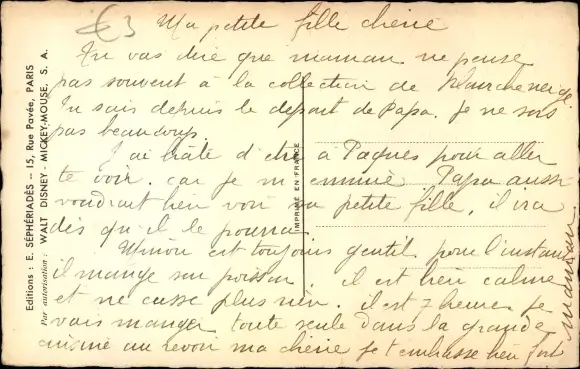 €3
Ma petite fille chérie
Tu vas dire que maman ne pense
pas souvent à la collection de Blancheneige.
Tu sais depuis le départ de Papa. Je ne sors
pas beaucoup.
J'ai hâte d'etre à Paques pour aller
te voir. car je m'ennuie Papa aussi
voudrait bien voir sa petite fille, il ira
dès qu'il le pourra.
est toujours gentil pour l'instant
il mange son poisson. il est bien calme
et ne casse plus rien. il est 7 heures je
vais manger toute seule dans la grande
cuisine au revoir ma chérie je t'embrasse bien fort
maman
Editions : E. SÉPHÉRIADÈS — 15, Rue Pavée, PARIS
Par autorisation : WALT DISNEY - MICKEY-MOUSE, S. A.
IMPRIMÉ EN FRANCE